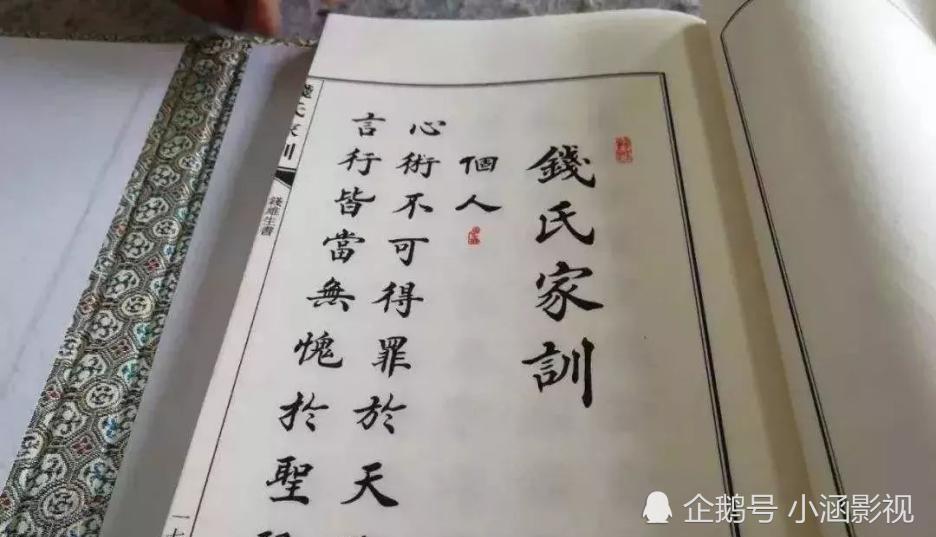 錢氏家訓
個人
心術不可得罪於天
言行皆當無愧於聖
錢氏家訓
錢維生書
一七
企鹅号 小涵影视